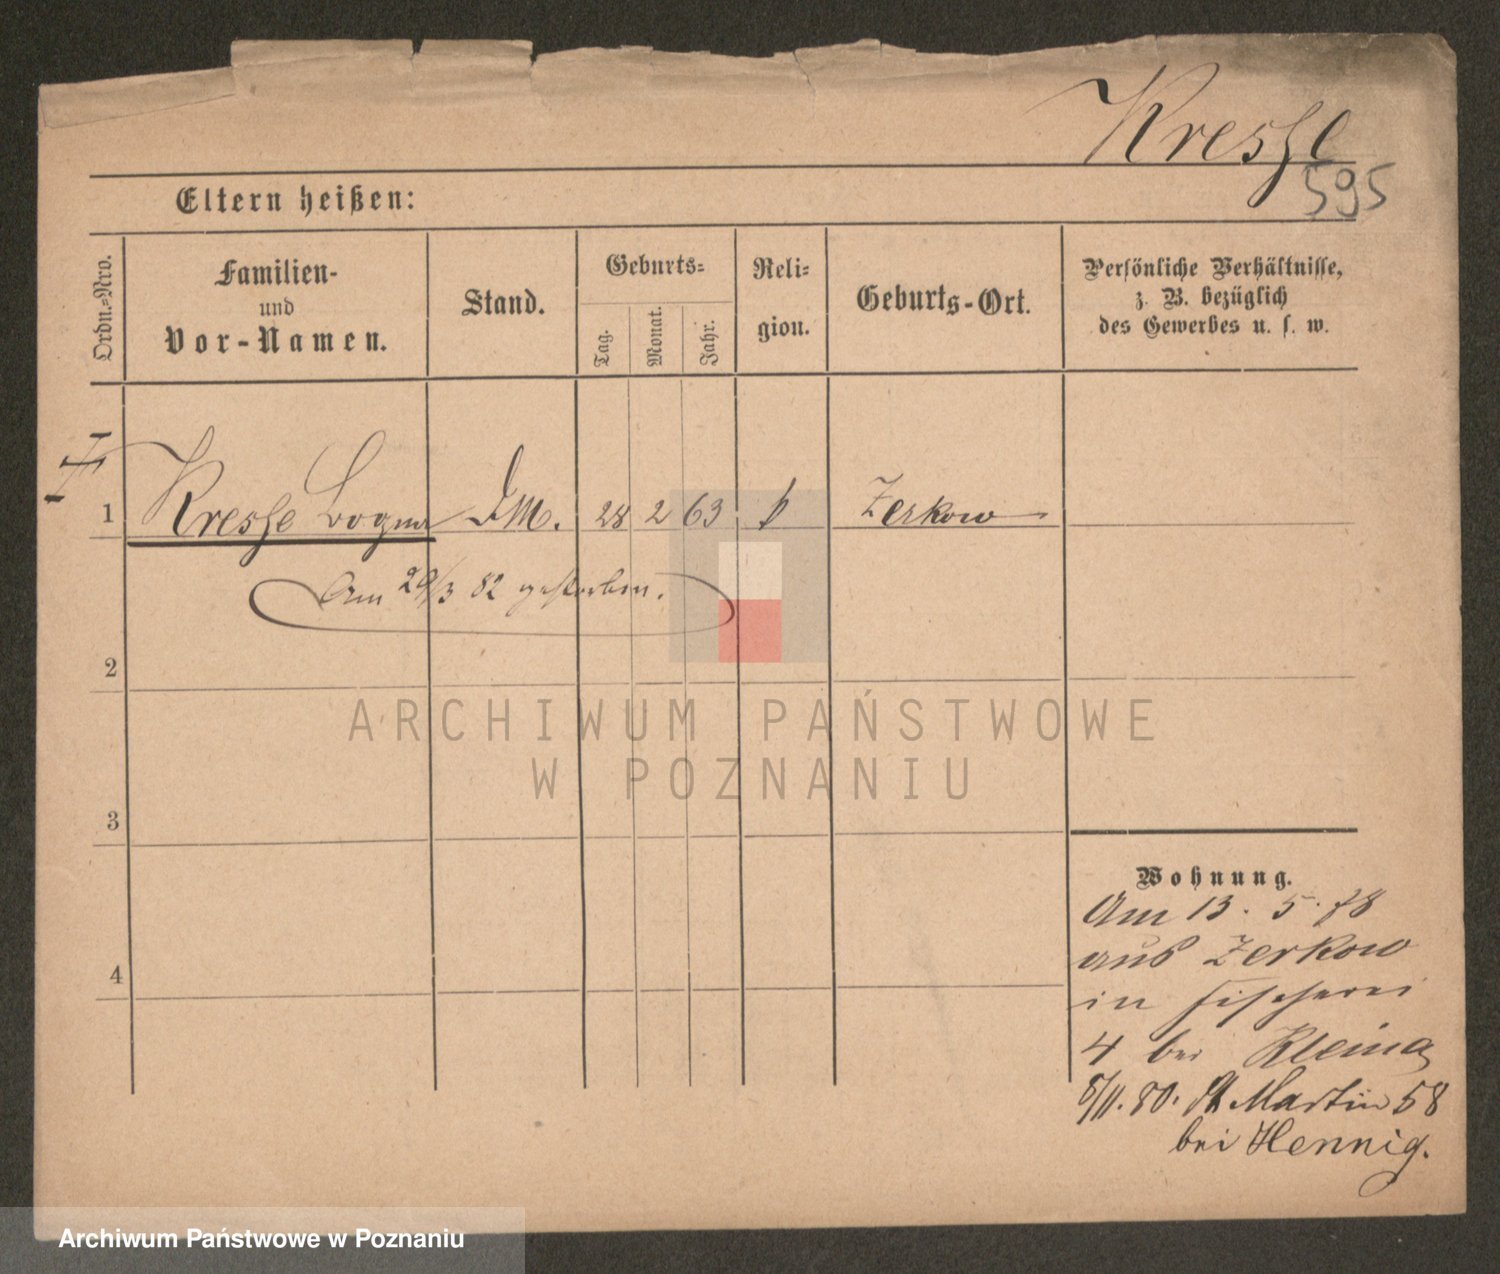 Kresse
595
Eltern heißen:
Ordn.-Nro.
Familien-
und
Vor-Namen.
Stand.
Geburts-
Tag.
Monat.
Jahr.
Reli-
gion.
Geburts-Ort.
Persönliche Verhältnisse,
z. B. bezüglich
des Gewerbes u. s. w.
1 Kresse DM. 28 2 63 Zerkow
Am 29/3 82 gestorben.
2
ARCHIWUM PAŃSTWOWE
W POZNANIU
3
Wohnung.
Am 13. 5. 78
aus Zerkow
in Fischerei
4
4 bei
8/11. 80. St Martin 58
bei Hennig.
Archiwum Państwowe w Poznaniu